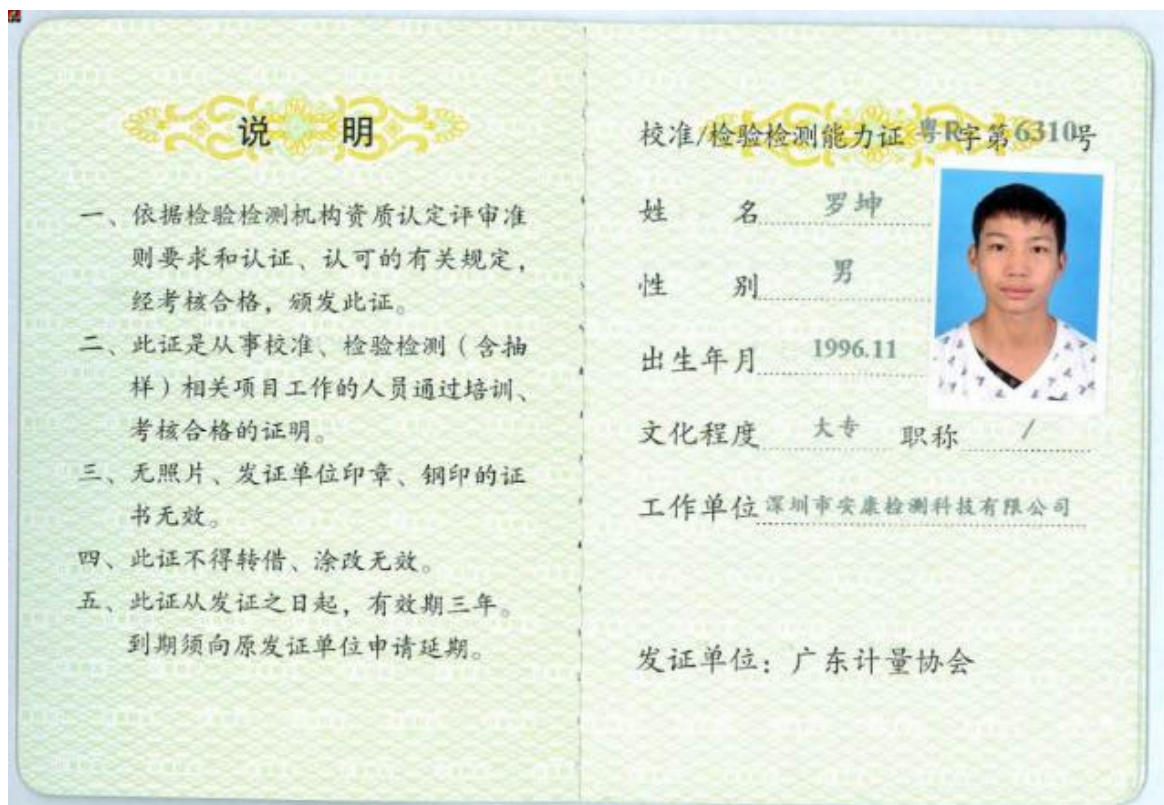 说 明
一、依据检验检测机构资质认定评审准
则要求和认证、认可的有关规定，
经考核合格，颁发此证。
二、此证是从事校准、检验检测（含抽
样）相关项目工作的人员通过培训、
考核合格的证明。
三、无照片、发证单位印章、钢印的证
书无效。
四、此证不得转借、涂改无效。
五、此证从发证之日起，有效期三年。
到期须向原发证单位申请延期。
校准/检验检测能力证 粤R字第6310号
姓 名 罗坤
性 别 男
出生年月 1996.11
文化程度 大专 职称 /
工作单位 深圳市安康检测科技有限公司
发证单位：广东计量协会